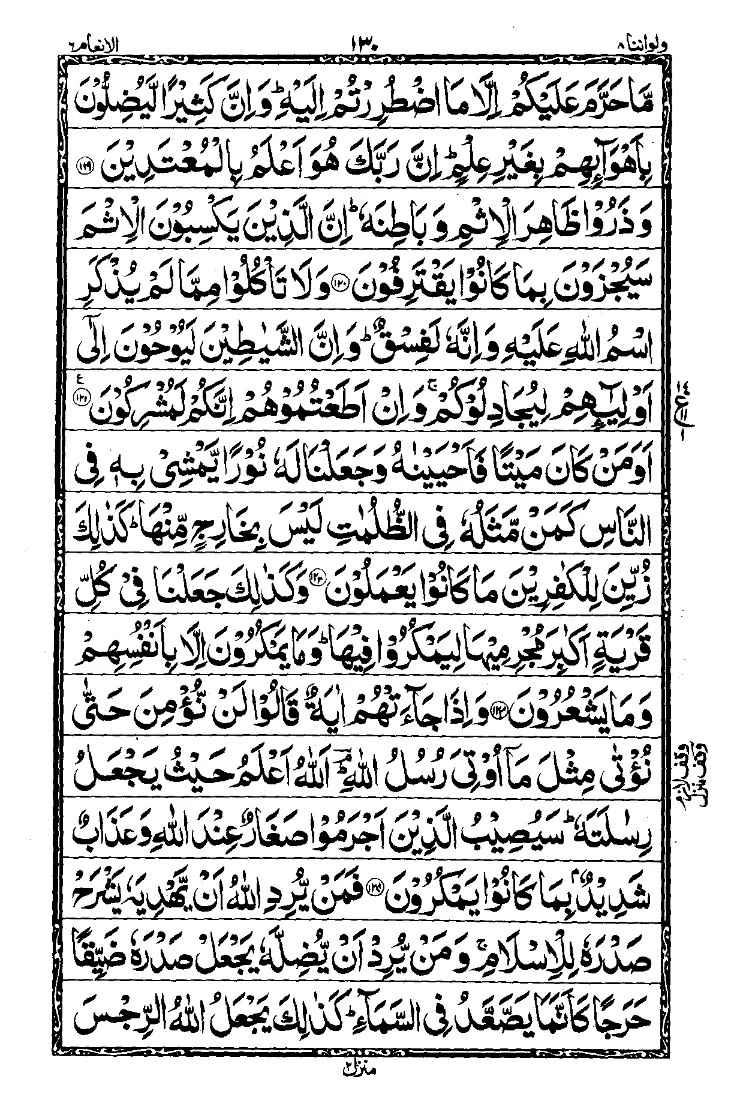 ولواننا ٨ ١٣٠ الانعام ٦
مَّا حَرَّمَ عَلَيْكُمْ اِلَّا مَا اضْطُرِرْتُمْ اِلَيْهِ ؕ وَاِنَّ كَثِيْرًا لَّيُضِلُّوْنَ
بِاَهْوَآىِٕهِمْ بِغَيْرِ عِلْمٍ ؕ اِنَّ رَبَّكَ هُوَ اَعْلَمُ بِالْمُعْتَدِيْنَ ﴿١١٩﴾
وَذَرُوْا ظَاهِرَ الْاِثْمِ وَبَاطِنَهٗ ؕ اِنَّ الَّذِيْنَ يَكْسِبُوْنَ الْاِثْمَ
سَيُجْزَوْنَ بِمَا كَانُوْا يَقْتَرِفُوْنَ ﴿١٢٠﴾ وَلَا تَاْكُلُوْا مِمَّا لَمْ يُذْكَرِ
اسْمُ اللّٰهِ عَلَيْهِ وَاِنَّهٗ لَفِسْقٌ ؕ وَاِنَّ الشَّيٰطِيْنَ لَيُوْحُوْنَ اِلٰٓى
اَوْلِيٰٓـِٕهِمْ لِيُجَادِلُوْكُمْ ۚ وَاِنْ اَطَعْتُمُوْهُمْ اِنَّكُمْ لَمُشْرِكُوْنَ ﴿١٢١﴾ ع
اَوَمَنْ كَانَ مَيْتًا فَاَحْيَيْنٰهُ وَجَعَلْنَا لَهٗ نُوْرًا يَّمْشِيْ بِهٖ فِي
النَّاسِ كَمَنْ مَّثَلُهٗ فِي الظُّلُمٰتِ لَيْسَ بِخَارِجٍ مِّنْهَا ؕ كَذٰلِكَ
زُيِّنَ لِلْكٰفِرِيْنَ مَا كَانُوْا يَعْمَلُوْنَ ﴿١٢٢﴾ وَكَذٰلِكَ جَعَلْنَا فِيْ كُلِّ
قَرْيَةٍ اَكٰبِرَ مُجْرِمِيْهَا لِيَمْكُرُوْا فِيْهَا ؕ وَمَا يَمْكُرُوْنَ اِلَّا بِاَنْفُسِهِمْ
وَمَا يَشْعُرُوْنَ ﴿١٢٣﴾ وَاِذَا جَآءَتْهُمْ اٰيَةٌ قَالُوْا لَنْ نُّؤْمِنَ حَتّٰى
نُؤْتٰى مِثْلَ مَاۤ اُوْتِيَ رُسُلُ اللّٰهِ ؕۘ اَللّٰهُ اَعْلَمُ حَيْثُ يَجْعَلُ
رِسٰلَتَهٗ ؕ سَيُصِيْبُ الَّذِيْنَ اَجْرَمُوْا صَغَارٌ عِنْدَ اللّٰهِ وَعَذَابٌ
شَدِيْدٌۢ بِمَا كَانُوْا يَمْكُرُوْنَ ﴿١٢٤﴾ فَمَنْ يُّرِدِ اللّٰهُ اَنْ يَّهْدِيَهٗ يَشْرَحْ
صَدْرَهٗ لِلْاِسْلَامِ ۚ وَمَنْ يُّرِدْ اَنْ يُّضِلَّهٗ يَجْعَلْ صَدْرَهٗ ضَيِّقًا
حَرَجًا كَاَنَّمَا يَصَّعَّدُ فِي السَّمَآءِ ؕ كَذٰلِكَ يَجْعَلُ اللّٰهُ الرِّجْسَ
وقف منزل
وقف لازم
منزل ٢